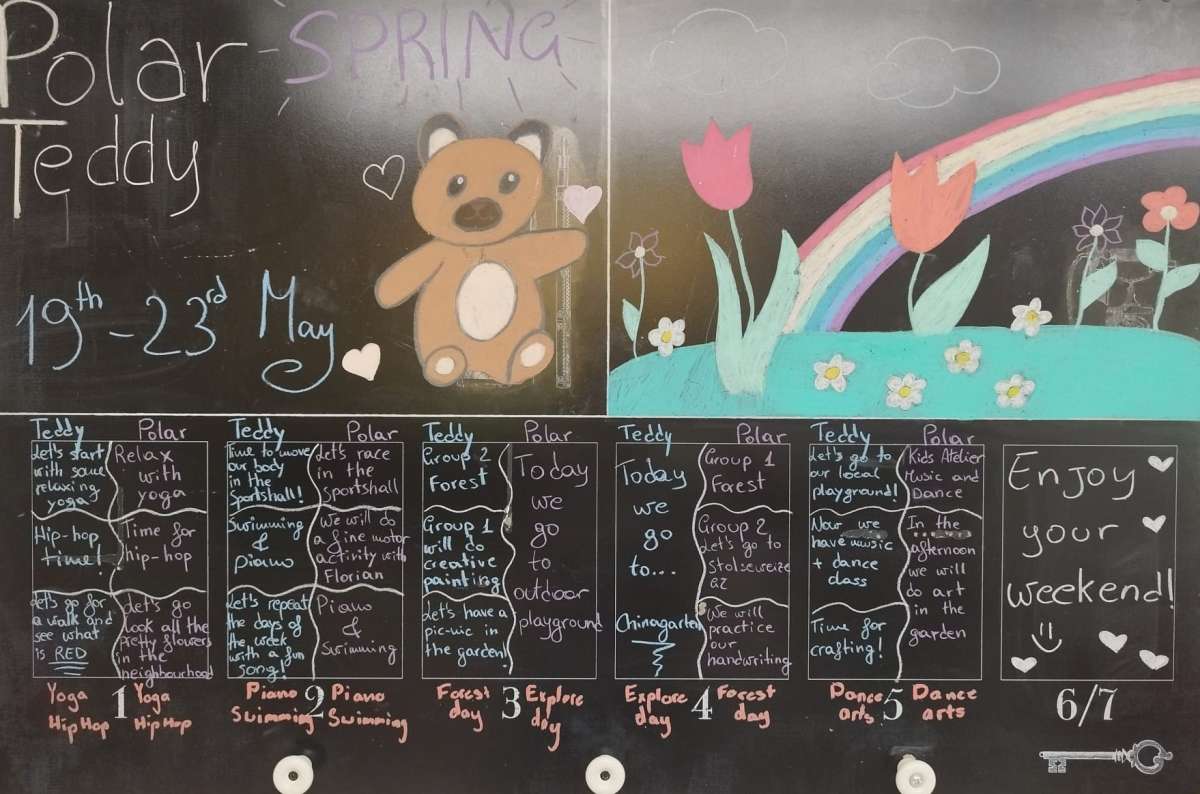 Polar
Teddy
SPRING
19th - 23rd May
Teddy
Let's start
with some
relaxing
yoga
Hip-hop
time!
Let's go for
a walk and
see what
is RED
Polar
Relax
with
yoga
Time for
hip-hop
Let's go
look all the
pretty flowers
in the
neighbourhood
Yoga
Hip Hop
1
Yoga
Hip Hop
Teddy
Time to move
our body
in the
Sportshall!
Swimming
&
piano
Let's repeat
the days of
the week
with a fun
song!
Polar
Let's race
in the
Sportshall
We will do
a fine motor
activity with
Florian
Piano
&
Swimming
Piano
Swimming
2
Piano
Swimming
Teddy
Group 2
Forest
Group 1
will do
creative
painting
Let's have a
pic-nic in
the garden!
Polar
Today
we
go
to
outdoor
playground
Forest
day
3
Explore
day
Teddy
Today
we
go
to...
Chinagarten
Polar
Group 1
Forest
Group 2
Let's go to
We will
practice
our
handwriting
Explore
day
4
Forest
day
Teddy
Let's go to
our local
playground!
Now we
have music
+ dance
class
Time for
crafting!
Polar
Kids Atelier
Music and
Dance
In the
afternoon
we will
do art
in the
garden
Dance
arts
5
Dance
arts
Enjoy
your
weekend!
6/7